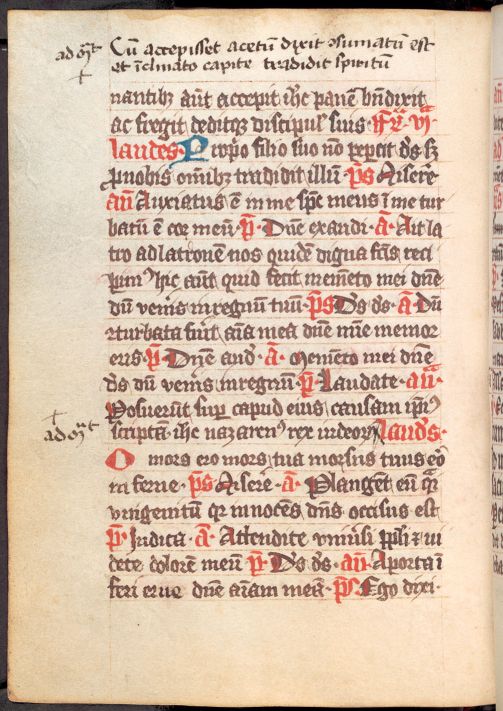 ad oīt Cū accepisset acetū dixit ɔsumatū est
et īclinato capite tradidit spiritū
nantibꝰ aūt accepit ihc panē bn̄dixit
ac fregit deditqꝫ discipul' suis fr̄ vi
laudes Proprio filio suo nō pepercit ds sꝫ
ꝓ nobis om̄ibꝫ tradidit illū ps Miser̄e
an̄ Anxiatus ē in me sp̄c meus ī me tur
batū ē cor meū p̄ Dn̄e exaudi a̅ Ait la
tro ad latronē nos quidē digna fc̄is reci
pimꝰ hic aūt quid fecit memēto mei dn̄e
dū ven̄is in regnū tuū ps Ds ds a̅ Dū
ɔturbata fūit aīa mea dn̄e mīe memor
eris p̄ Dn̄e aud' a̅ Memēto mei dn̄e
ds dū ven̄is in regnū p̄ Laudate an̄
Posuerūt sup̄ capud eius causam ip̄iꝰ
ad oīt scriptā ihc nazarenꝰ rex iudeoꝝ laud's
O mors ero mors tua morsus tuus ero
inferne ps Miser̄e a̅ Plangēt eū qr̄
unigenitū qr̄ innocēs dn̄s occisus est
p̄ Iudica a̅ Attendite univ̄si ppl'i ⁊ vi
dete dolorē meū p̄ Ds ds an̄ A porta ī
feri erue dn̄e aīam meā ps Ego dixi